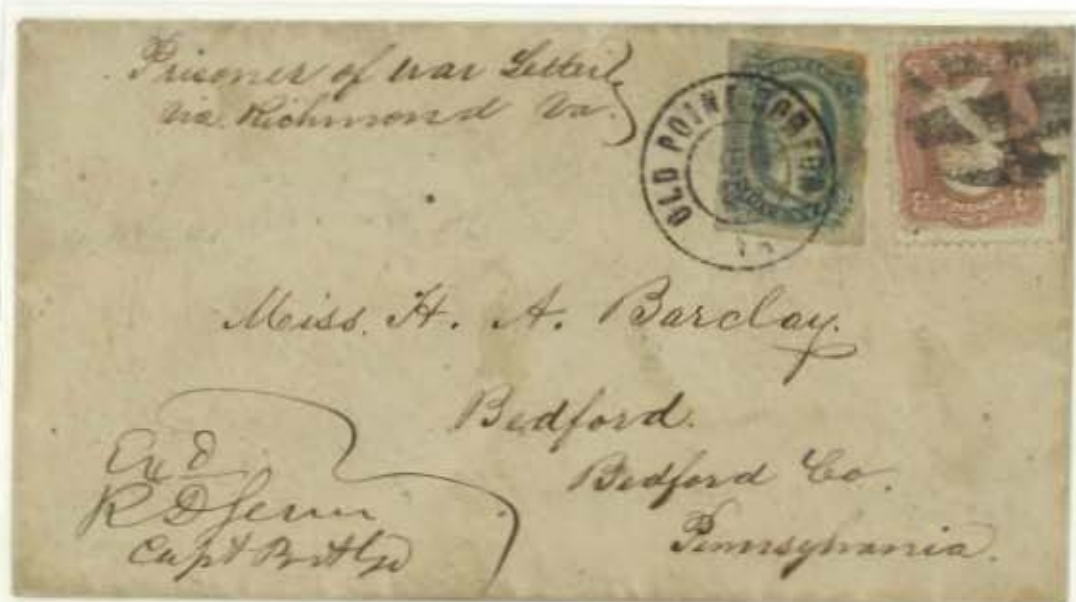 Prisoner of war Letter
via Richmond Va.
OLD POINT COMFORT
VA
Miss. H. A. Barclay.
Bedford.
Bedford Co.
Pennsylvania.
Exd
R D
Capt